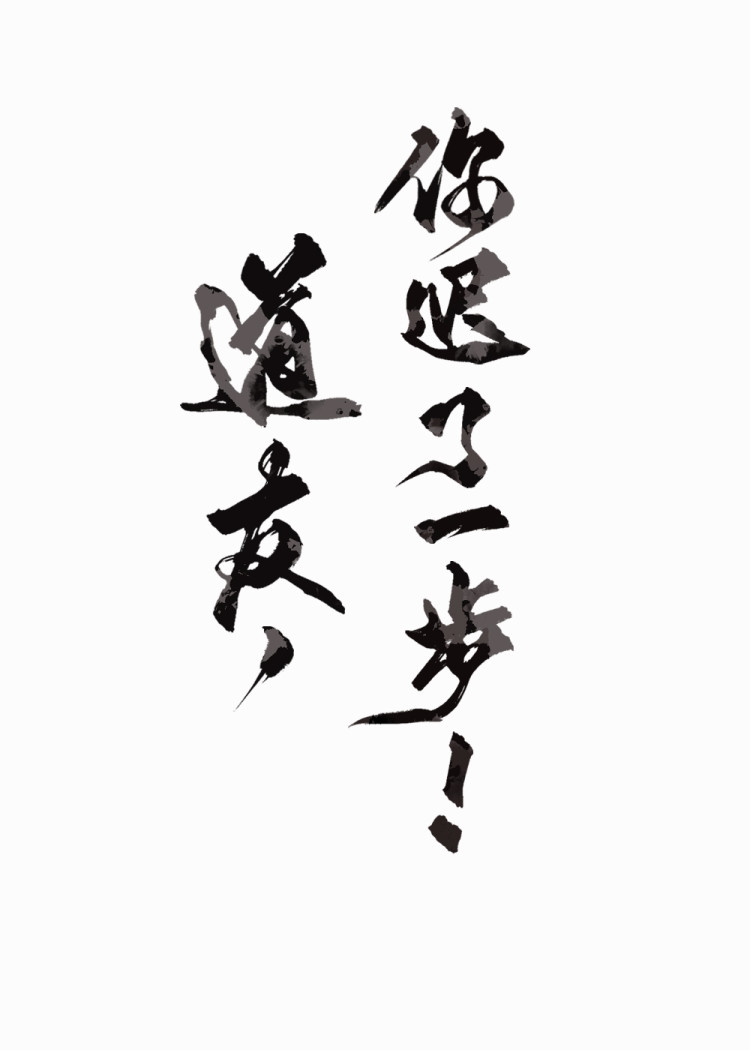 道友，
你迟了一步！